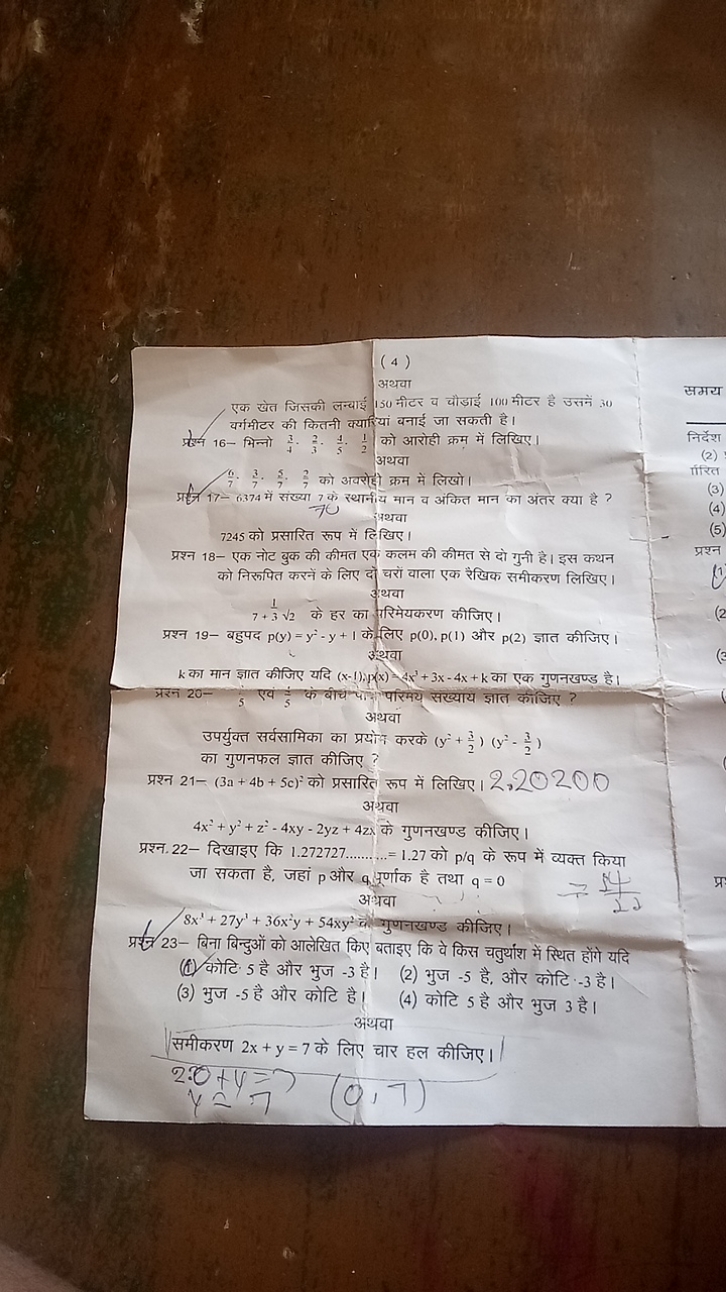 ( 4 )
अथवा
एक खेत जिसकी लम्बाई 150 मीटर व चौड़ाई 100 मीटर है उसमें 30
वर्गमीटर की कितनी क्यारियां बनाई जा सकती है।
प्रश्न 16– भिन्नो 3/4, 2/3, 4/5, 1/2 को आरोही क्रम में लिखिए।
अथवा
6/7, 3/7, 5/7, 2/7 को अवरोही क्रम में लिखो।
प्रश्न 17– 6374 में संख्या 7 के स्थानीय मान व अंकित मान का अंतर क्या है ?
70
अथवा
7245 को प्रसारित रूप में लिखिए।
प्रश्न 18– एक नोट बुक की कीमत एक कलम की कीमत से दो गुनी है। इस कथन
को निरूपित करनें के लिए दो चरों वाला एक रैखिक समीकरण लिखिए।
अथवा
1/7 + 3√2 के हर का परिमेयकरण कीजिए।
प्रश्न 19– बहुपद p(y) = y² - y + 1 के लिए p(0), p(1) और p(2) ज्ञात कीजिए।
अथवा
k का मान ज्ञात कीजिए यदि (x-1), p(x) = 4x³ + 3x - 4x + k का एक गुणनखण्ड है।
प्रश्न 20– एवं 4/5 के बीच पांच परिमेय संख्याय ज्ञात कीजिए ?
अथवा
उपर्युक्त सर्वसामिका का प्रयोग करके (y² + 3/2) (y² - 3/2)
का गुणनफल ज्ञात कीजिए ?
प्रश्न 21– (3a + 4b + 5c)² को प्रसारित रूप में लिखिए। 2.20200
अथवा
4x² + y² + z² - 4xy - 2yz + 4zx के गुणनखण्ड कीजिए।
प्रश्न. 22– दिखाइए कि 1.272727..........= 1.27 को p/q के रूप में व्यक्त किया
जा सकता है, जहां p और q पूर्णाक है तथा q = 0
= 14/22
अथवा
8x³ + 27y³ + 36x²y + 54xy² के गुणनखण्ड कीजिए।
प्रश्न 23– बिना बिन्दुओं को आलेखित किए बताइए कि वे किस चतुर्थाश में स्थित होंगे यदि
(1) कोटि 5 है और भुज -3 है। (2) भुज -5 है, और कोटि -3 है।
(3) भुज -5 है और कोटि है। (4) कोटि 5 है और भुज 3 है।
अथवा
समीकरण 2x + y = 7 के लिए चार हल कीजिए।
2.0 + y = 7
y = 7 (0, 7)
समय
निर्देश
(2)
(3)
(4)
(5)
प्रश्न